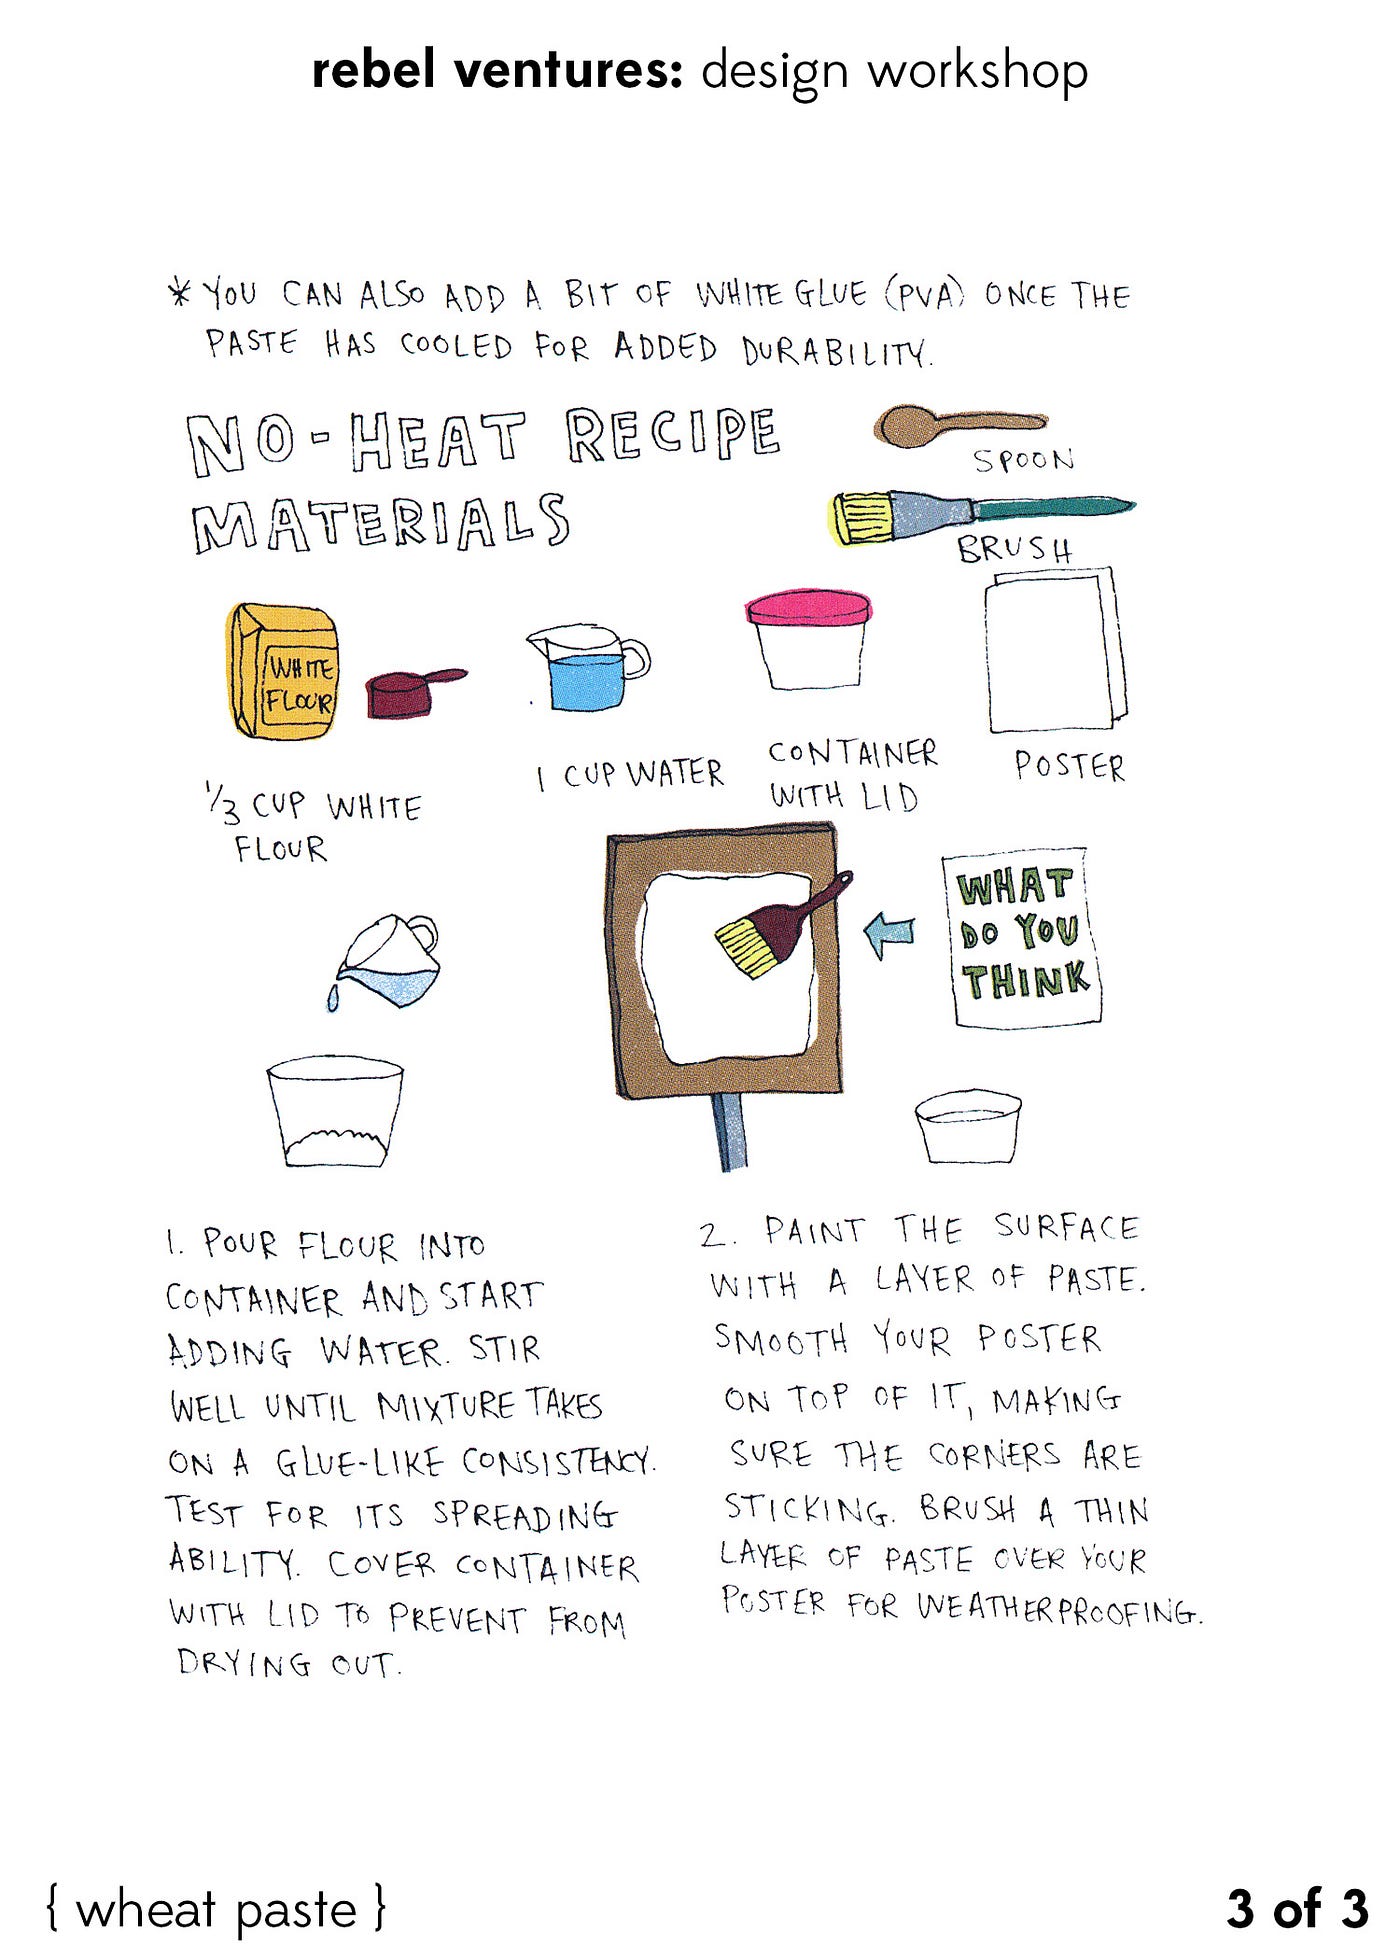 rebel ventures: design workshop
* YOU CAN ALSO ADD A BIT OF WHITE GLUE (PVA) ONCE THE
PASTE HAS COOLED FOR ADDED DURABILITY.
NO-HEAT RECIPE
MATERIALS
SPOON
BRUSH
WHITE
FLOUR
1/3 CUP WHITE
FLOUR
1 CUP WATER
CONTAINER
WITH LID
POSTER
WHAT
DO YOU
THINK
1. POUR FLOUR INTO
CONTAINER AND START
ADDING WATER. STIR
WELL UNTIL MIXTURE TAKES
ON A GLUE-LIKE CONSISTENCY.
TEST FOR ITS SPREADING
ABILITY. COVER CONTAINER
WITH LID TO PREVENT FROM
DRYING OUT.
2. PAINT THE SURFACE
WITH A LAYER OF PASTE.
SMOOTH YOUR POSTER
ON TOP OF IT, MAKING
SURE THE CORNERS ARE
STICKING. BRUSH A THIN
LAYER OF PASTE OVER YOUR
POSTER FOR WEATHERPROOFING.
{ wheat paste }
3 of 3